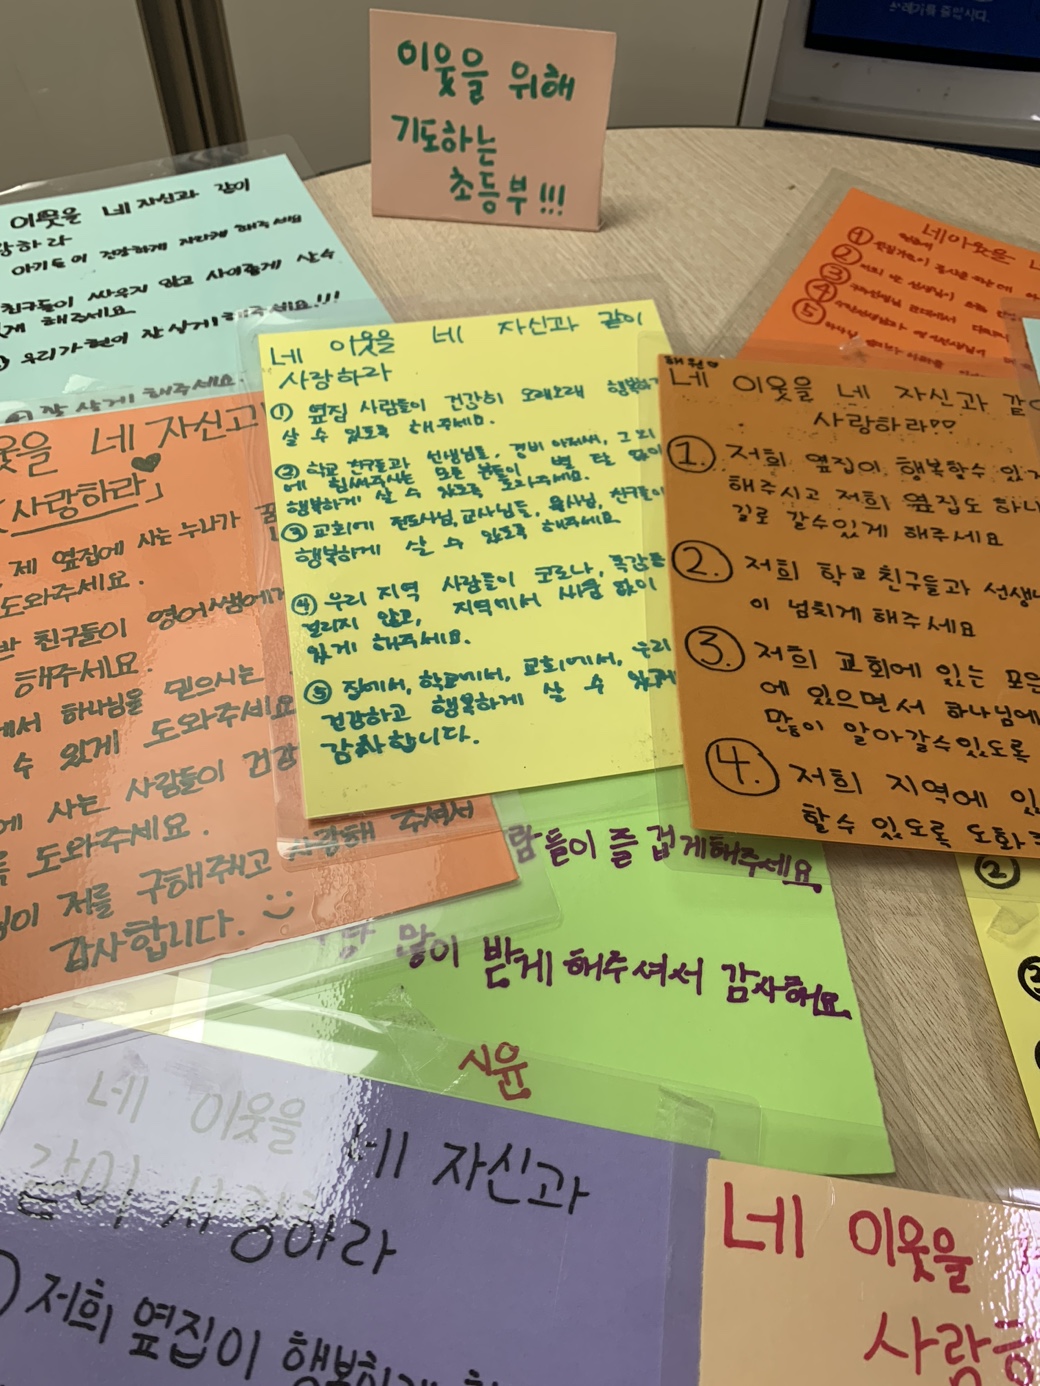 이웃을 위해
기도하는
초등부!!!
쓰레기를 줄입시다.
이웃을 네 자신과 같이
하라
아기들이 건강하게 자라게 해주세요
친구들이 싸우지 않고 사이좋게 살수
있게 해주세요
우리가 현이 잘 살게 해주세요!!!
잘 살게 해주세요.
네이웃을
①
②
③
④
⑤
네 이웃을 네 자신과 같이
사랑하라
① 옆집 사람들이 건강히 오래오래 행복하게
살 수 있도록 해주세요.
② 학교 친구들과 선생님들, 경비 아저씨, 그 외
에 힘써주시는 모든 분들이 별 탈 없이
행복하게 살 수 있도록 도와주세요.
③ 교회에 전도사님, 교사님들, 목사님, 친구들이
행복하게 살 수 있도록 해주세요
④ 우리 지역 사람들이 코로나, 독감등
걸리지 않고, 지역에서 사고 없이
있게 해주세요.
⑤ 집에서, 학교에서, 교회에서, 우리
건강하고 행복하게 살 수 있게
감사합니다.
해원♡
네 이웃을 네 자신과 같
사랑하라♡♡
①. 저희 옆집이 행복할수 있게
해주시고 저희 옆집도 하나
길로 갈수있게 해주세요
②. 저희 학교 친구들과 선생
이 넘치게 해주세요
③. 저희 교회에 있는 모든
에 있으면서 하나님에
많이 알아갈수있도록
④. 저희 지역에 있
할수 있도록 도와주
네 자신과
「사랑하라」
제 옆집에 사는 누나가 꿈
도와주세요.
반 친구들이 영어쌤에게
해주세요.
에서 하나님을 믿으시는
수 있게 도와주세요
에 사는 사람들이 건강
도와주세요.
님이 저를 구해주시고 사랑해 주셔서
감사합니다. :)
람들이 즐겁게해주세요
많이 받게 해주셔서 감사해요
시윤
②
네 이웃을 네 자신과
같이 사랑하라
저희 옆집이 행복하게
네 이웃을
사랑하